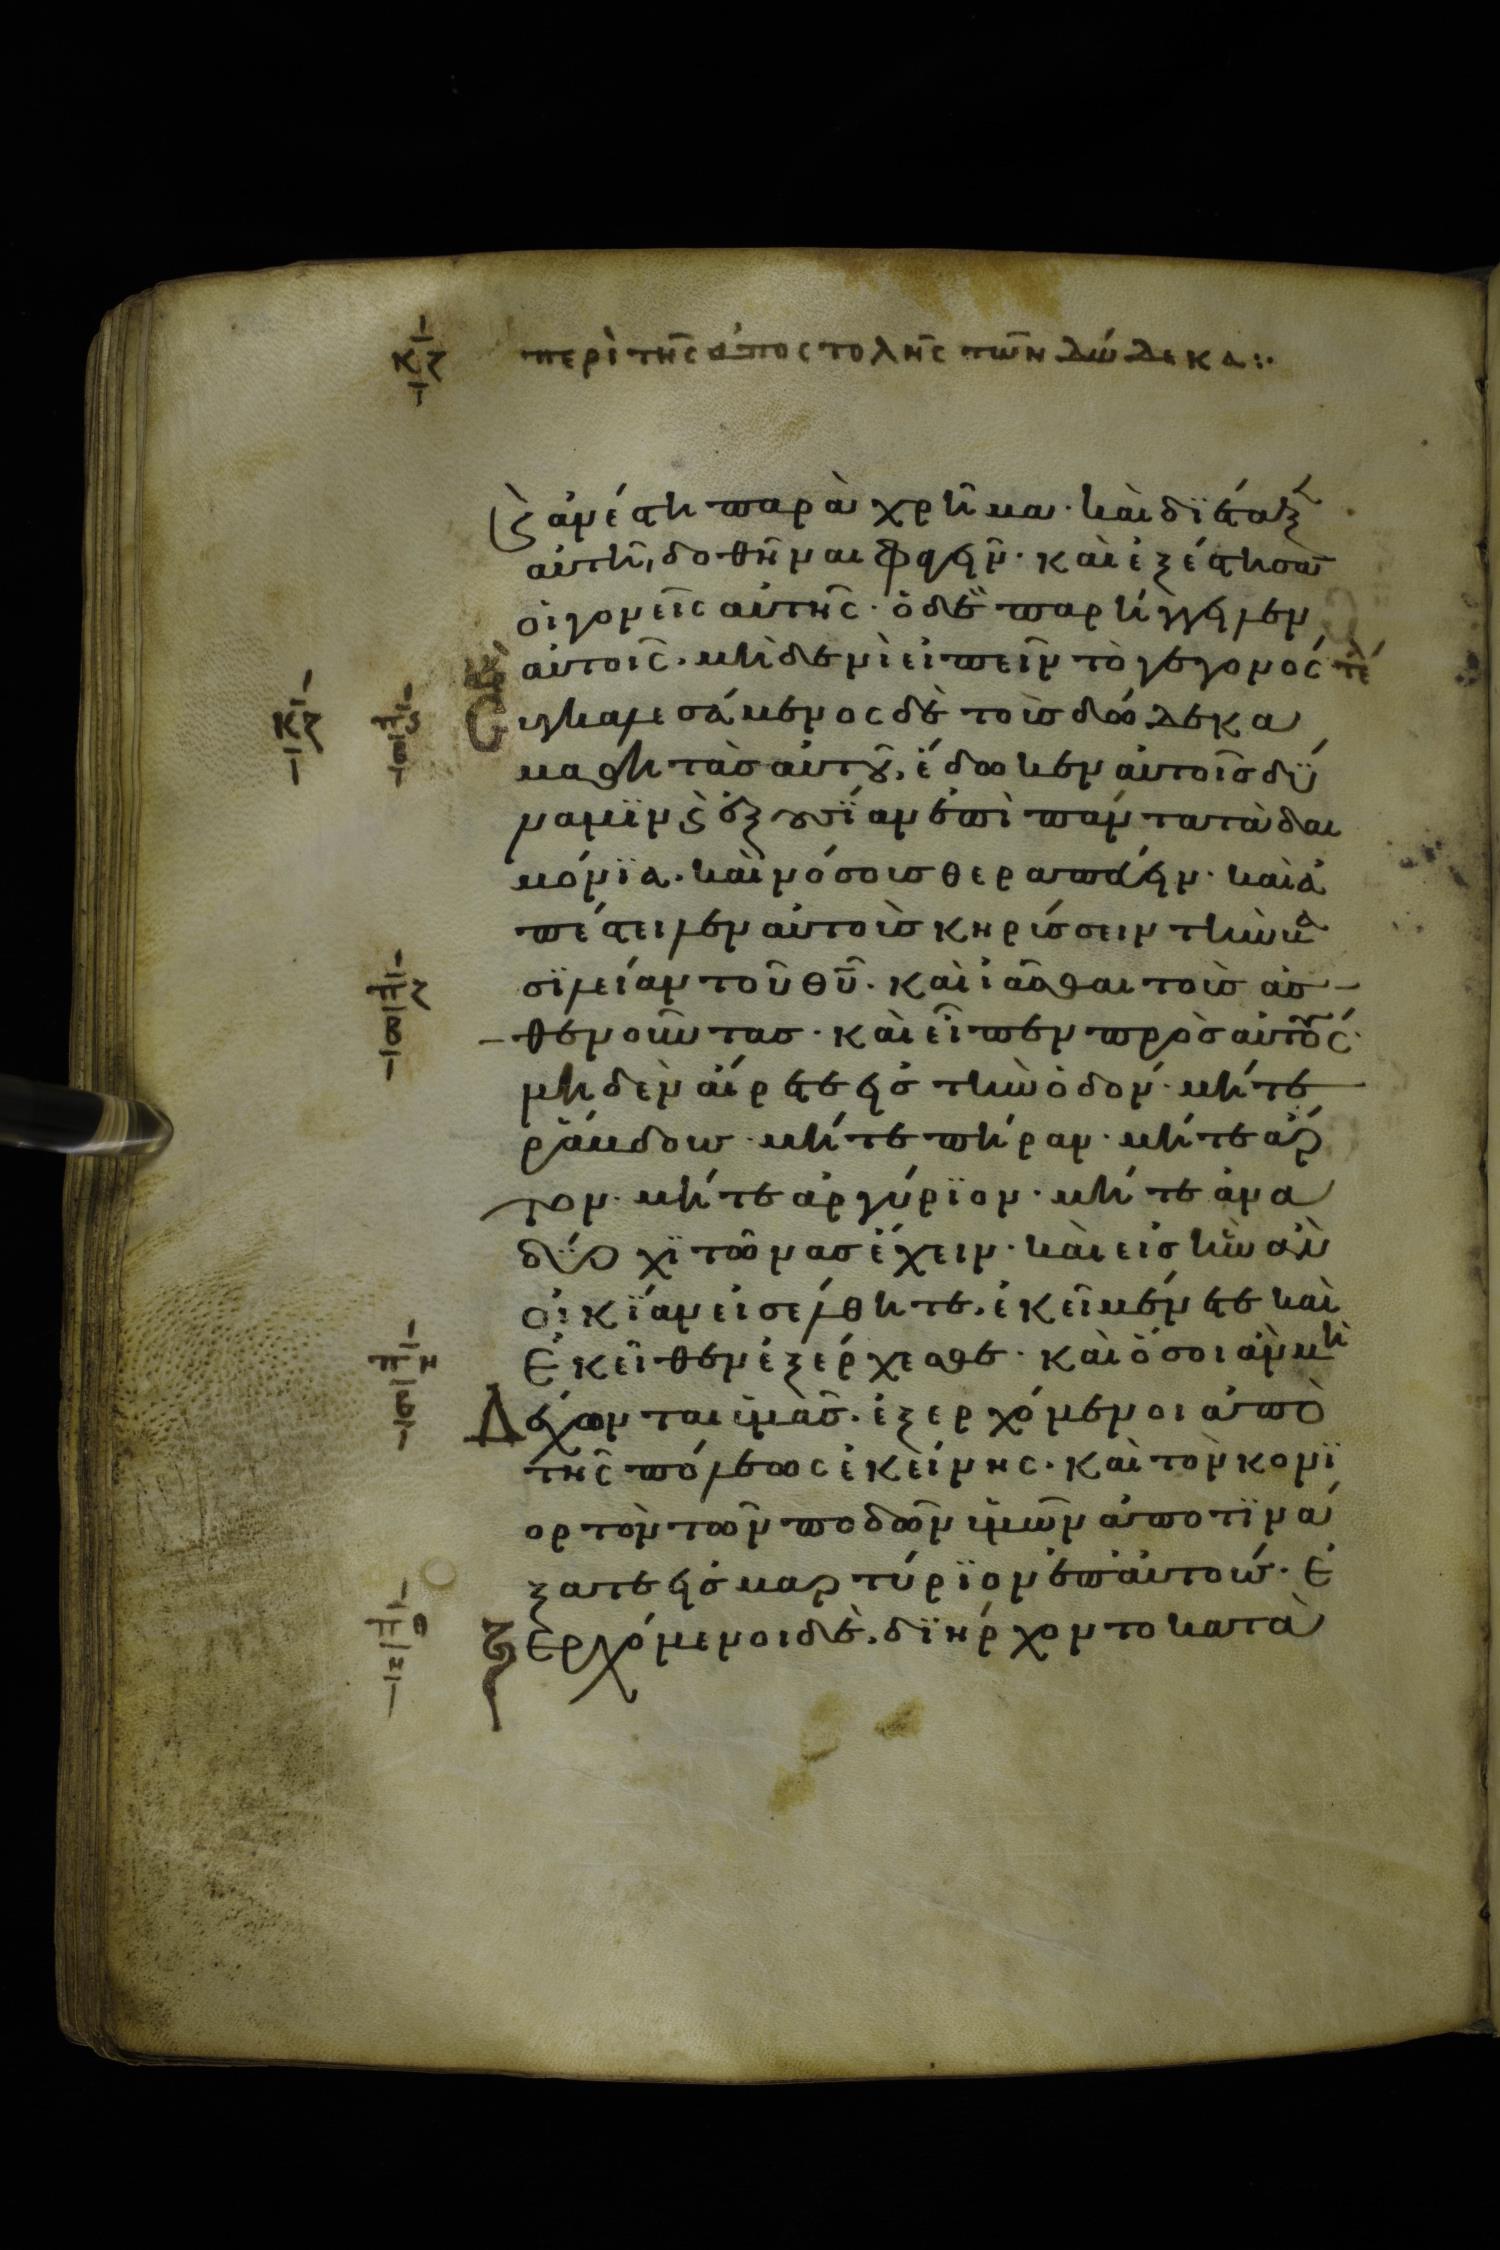 κζ περὶ τῆς ἀποστολῆς τῶν δώδεκα:·
ϗ ἀνέστη παρὰ χρῆμα· καὶ διέταξ
αὐτῆ, δοθῆναι φαγεῖν· καὶ ἐξέστησαν
οἱ γονεῖς αὐτῆς· ὁ δὲ παρήγγειλεν
αὐτοῖς· μηδενὶ εἰπεῖν τὸ γεγονός τέ
κζ Συγκαλεσάμενος δὲ τοὺς δώδεκα
μαθητὰς αὐτοῦ, ἔδωκεν αὐτοῖς δύ
ναμϊν ϗ ἐξουσίαν ἐπὶ πάντα τὰ δαι
μόνϊα· καὶ νόσους θεραπεύειν· καὶ ἀ
πέστειλεν αὐτοὺς κηρύσσειν τὴν βα
σϊλείαν τοῦ θῦ· καὶ ἰᾶσθαι τοὺς ἀσ
θενοῦντας· καὶ εἶπεν πρὸς αὐτούς·
μηδὲν αἴρετε εἰς τὴν ὁδόν· μήτε
ράβδους· μήτε πήραν· μήτε ἄρ
τον· μήτε ἀργύρϊον· μήτε ἀνὰ
δύο χϊτῶνας ἔχειν· καὶ εἰς ἣν ἂν
οἰκΐαν εἰσέλθητε, ἐκεῖ μένετε καὶ
ἐκεῖθεν ἐξέρχεσθε· καὶ ὅσοι ἂν μὴ
Δέχωνται ὑμᾶς· ἐξερχόμενοι ἀπὸ
τῆς πόλεως ἐκείνης· καὶ τὸν κονϊ
ορτὸν τῶν ποδῶν ὑμῶν ἀποτϊνά
ξατε εἰς μαρτύρϊον ἐπ αὐτούς· Ἐ
ξερχόμενοι δὲ, δϊήρχοντο κατὰ